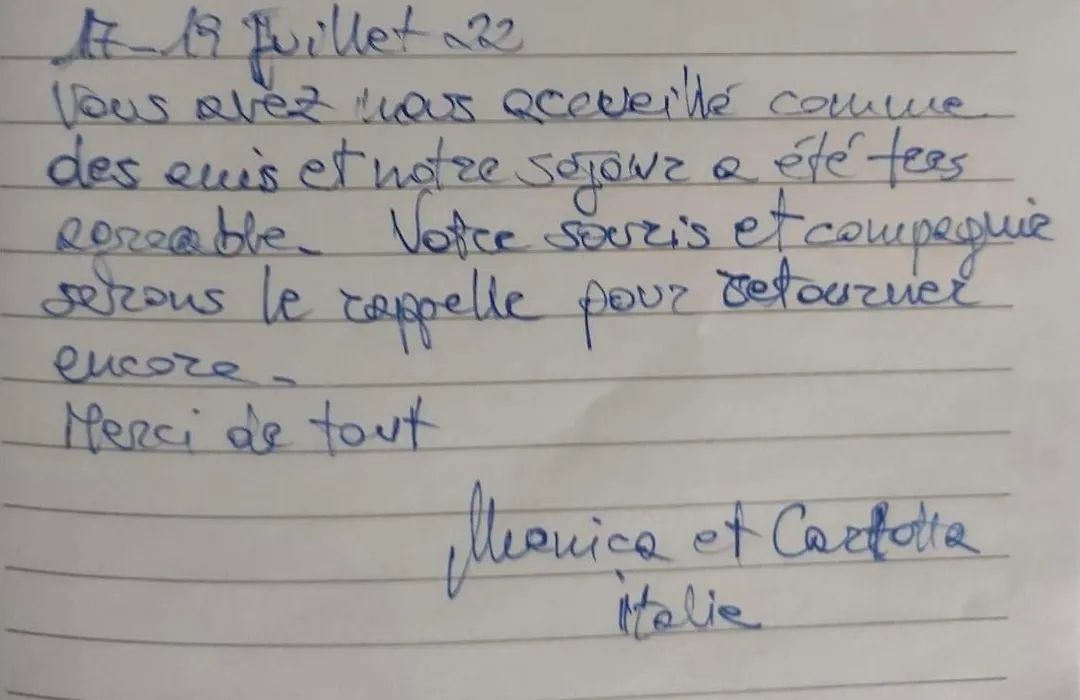 17-19 Juillet 22
Vous avez nous acceuillé comme
des amis et notre sejour a été tres
agreable. Votre souris et compagnie
serons le rappelle pour retourner
encore.
Merci de tout
Monica et Carlotta
italie